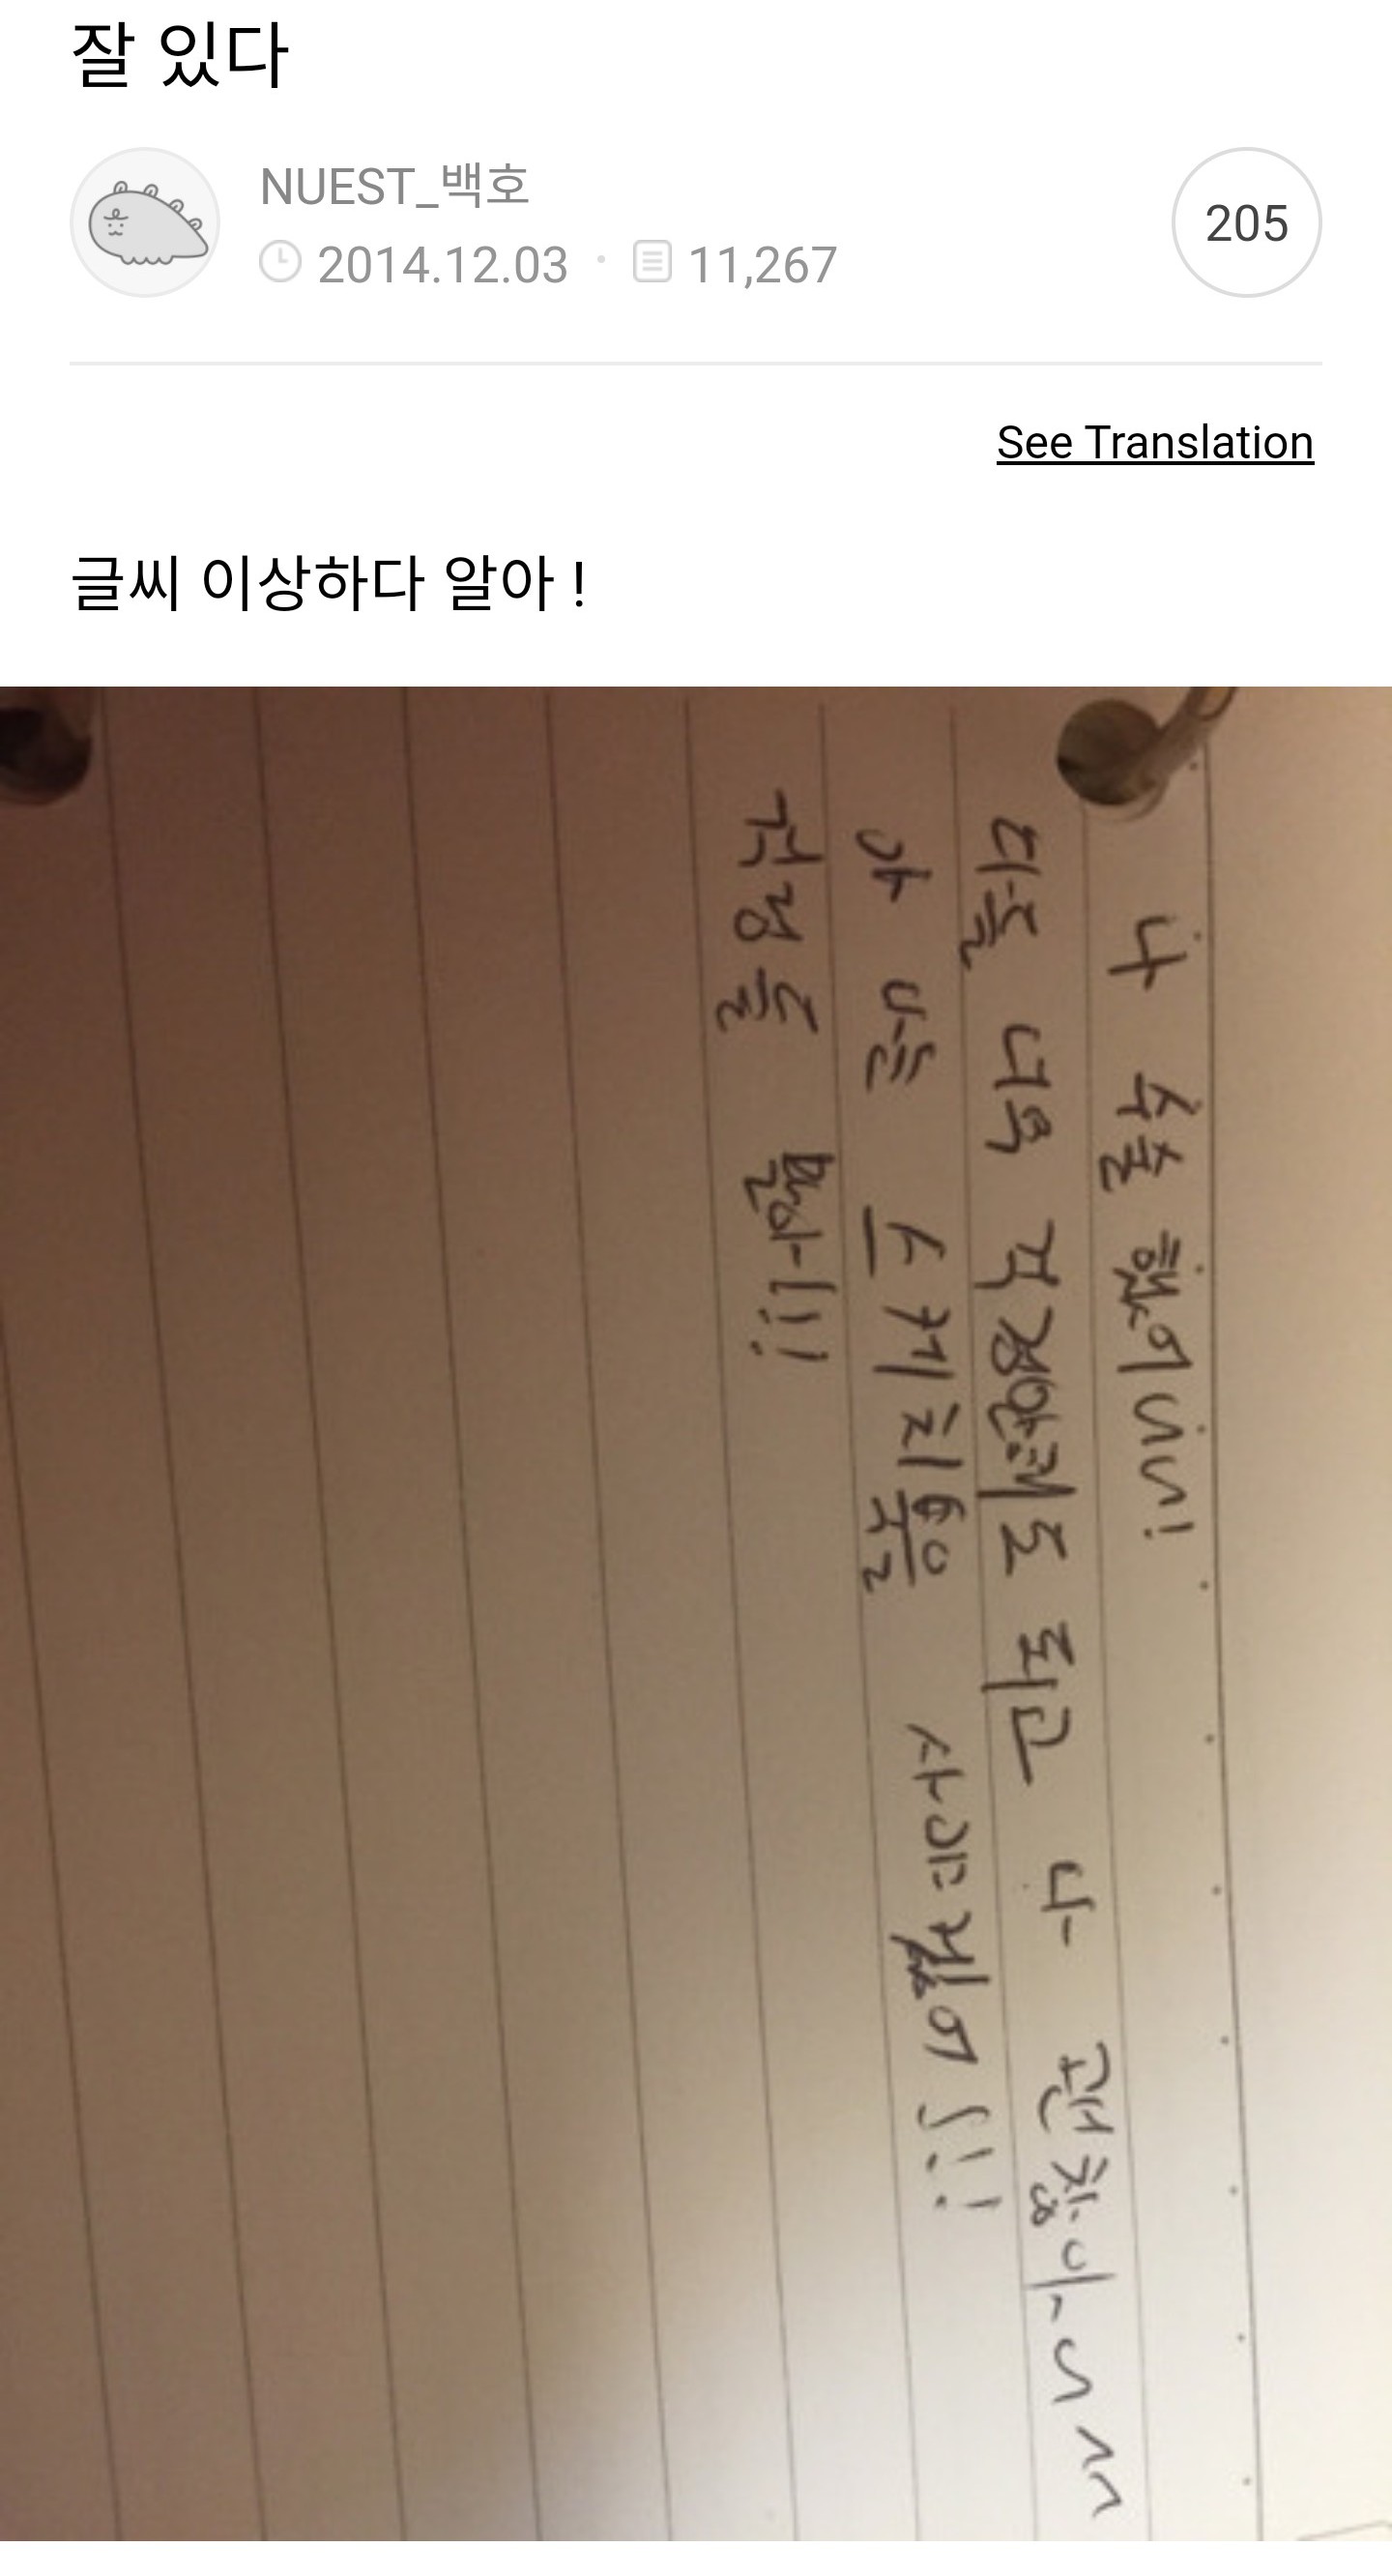 잘 있다
NUEST_백호
2014.12.03 · 11,267
205
See Translation
글씨 이상하다 알아 !
나 수술 했어~~!
다들 너무 걱정안해도 되고 나 괜찮아~~~
아 나는 스케치북을 사야겠어!!!
걱정들 말아!!!